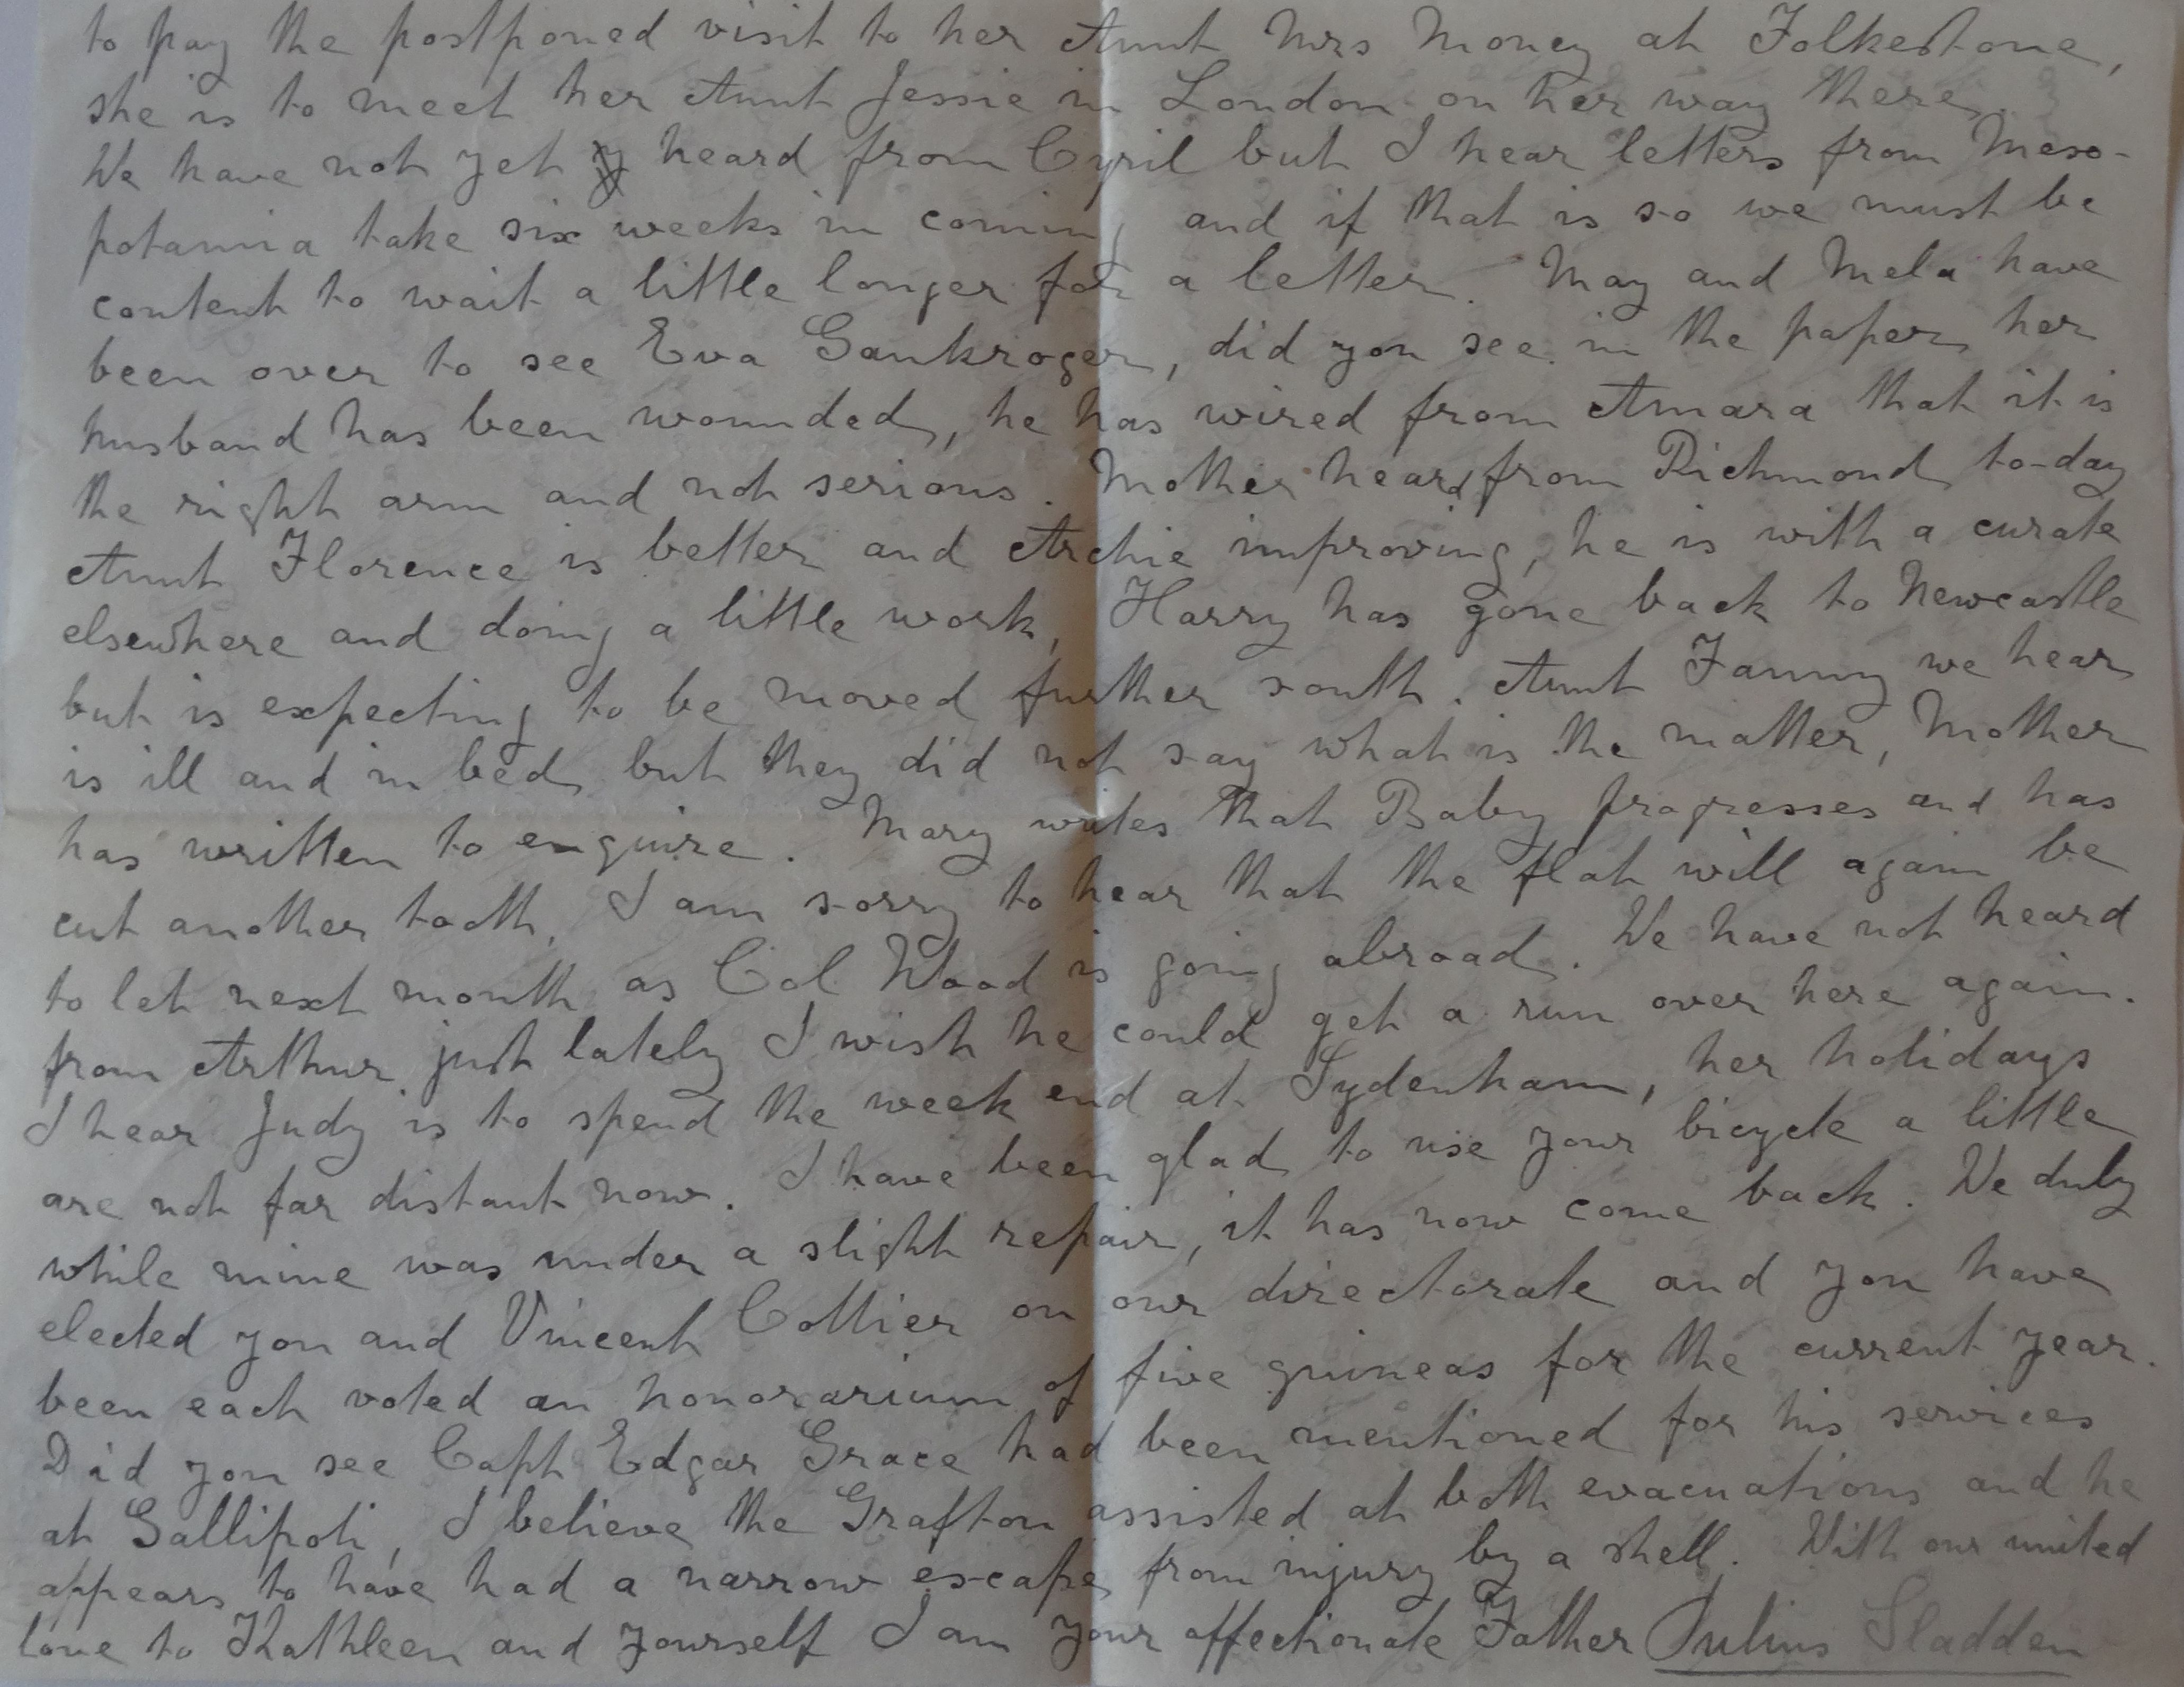 to pay the postponed visit to her Aunt Mrs Money at Folkestone,
she is to meet her Aunt Jessie in London on her way there.
We have not yet heard from Cyril but I hear letters from Meso-
potamia take six weeks in coming and if that is so we must be
content to wait a little longer for a letter. May and Mela have
been over to see Eva Gaukroger, did you see in the paper her
husband has been wounded, he has wired from Amara that it is
the right arm and not serious. Mother heard from Richmond to-day
Aunt Florence is better and Archie improving, he is with a curate
elsewhere and doing a little work, Harry has gone back to Newcastle
but is expecting to be moved further south. Aunt Fanny we hear
is ill and in bed but they did not say what is the matter, Mother
has written to enquire. Mary writes that Baby progresses and has
cut another tooth, I am sorry to hear that the flat will again be
to let next month as Col Wood is going abroad. We have not heard
from Arthur just lately I wish he could get a run over here again.
I hear Judy is to spend the week end at Sydenham, her holidays
are not far distant now. I have been glad to use your bicycle a little
while mine was under a slight repair, it has now come back. We duly
elected you and Vincent Collier on our directorate and you have
been each voted an honorarium of five guineas for the current year.
Did you see Capt Edgar Grace had been mentioned for his services
at Gallipoli, I believe the Grafton assisted at both evacuations and he
appears to have had a narrow escape from injury by a shell. With our united
love to Kathleen and yourself I am your affectionate Father Julius Sladden